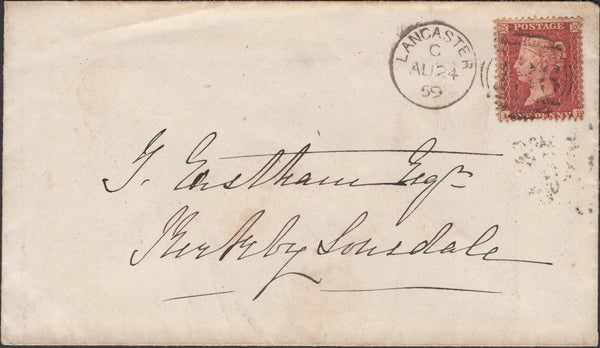 LANCASTER
C
AU 24
59
POSTAGE
PENNY
T. Eastham Esqr.
Kirkby Lonsdale